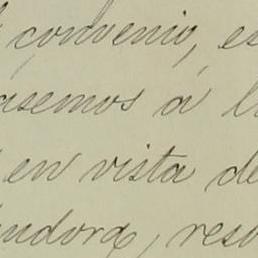 convenio, es
asemos á l
en vista de
ndora, reso